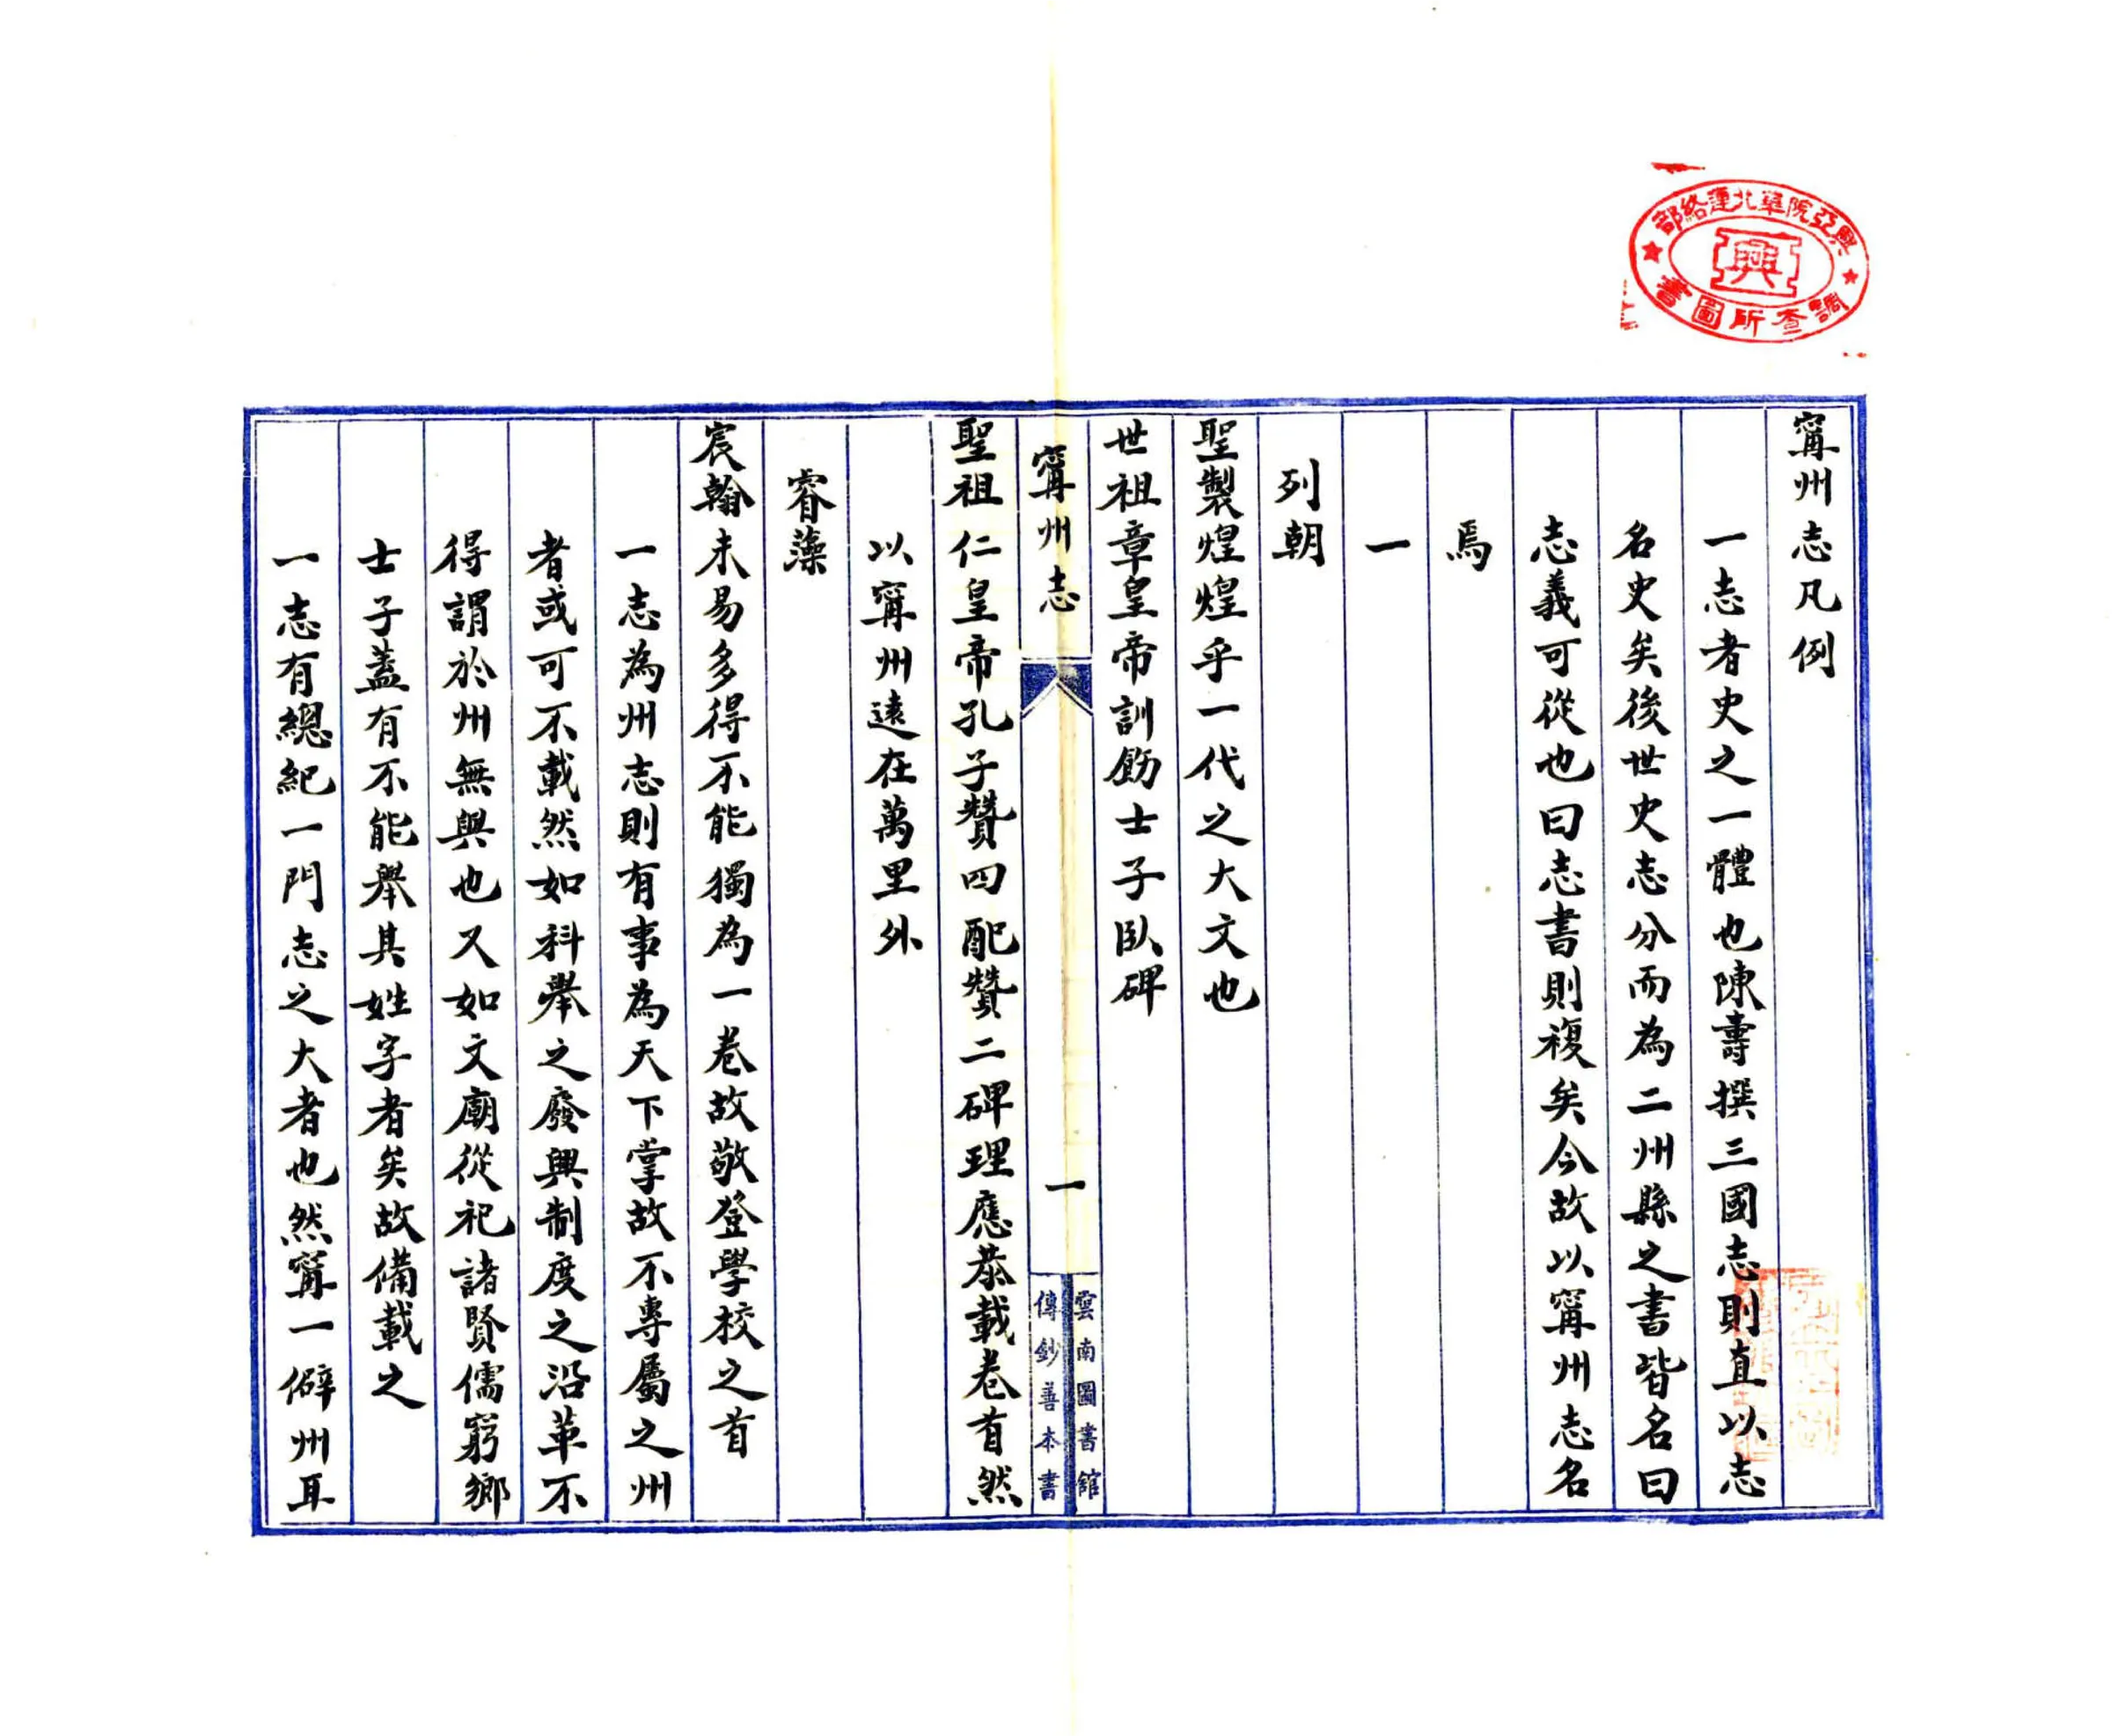 興亞院華北連絡部
調查所圖書
興
寗州志凡例
一志者史之一體也陳壽撰三國志則直以志
名史矣後世史志分而為二州縣之書皆名曰
志義可從也曰志書則複矣今故以寗州志名
焉
一
列朝
聖製煌煌乎一代之大文也
世祖章皇帝訓飭士子臥碑
寗州志
一
雲南圖書館
傳鈔善本書
聖祖仁皇帝孔子贊四配贊二碑理應恭載卷首然
以寗州遠在萬里外
睿藻
宸翰未易多得不能獨為一卷故敬登學校之首
一志為州志則有事為天下掌故不專屬之州
者或可不載然如科舉之廢興制度之沿革不
得謂於州無與也又如文廟從祀諸賢儒窮鄉
士子蓋有不能舉其姓字者矣故備載之
一志有總紀一門志之大者也然寗一僻州耳